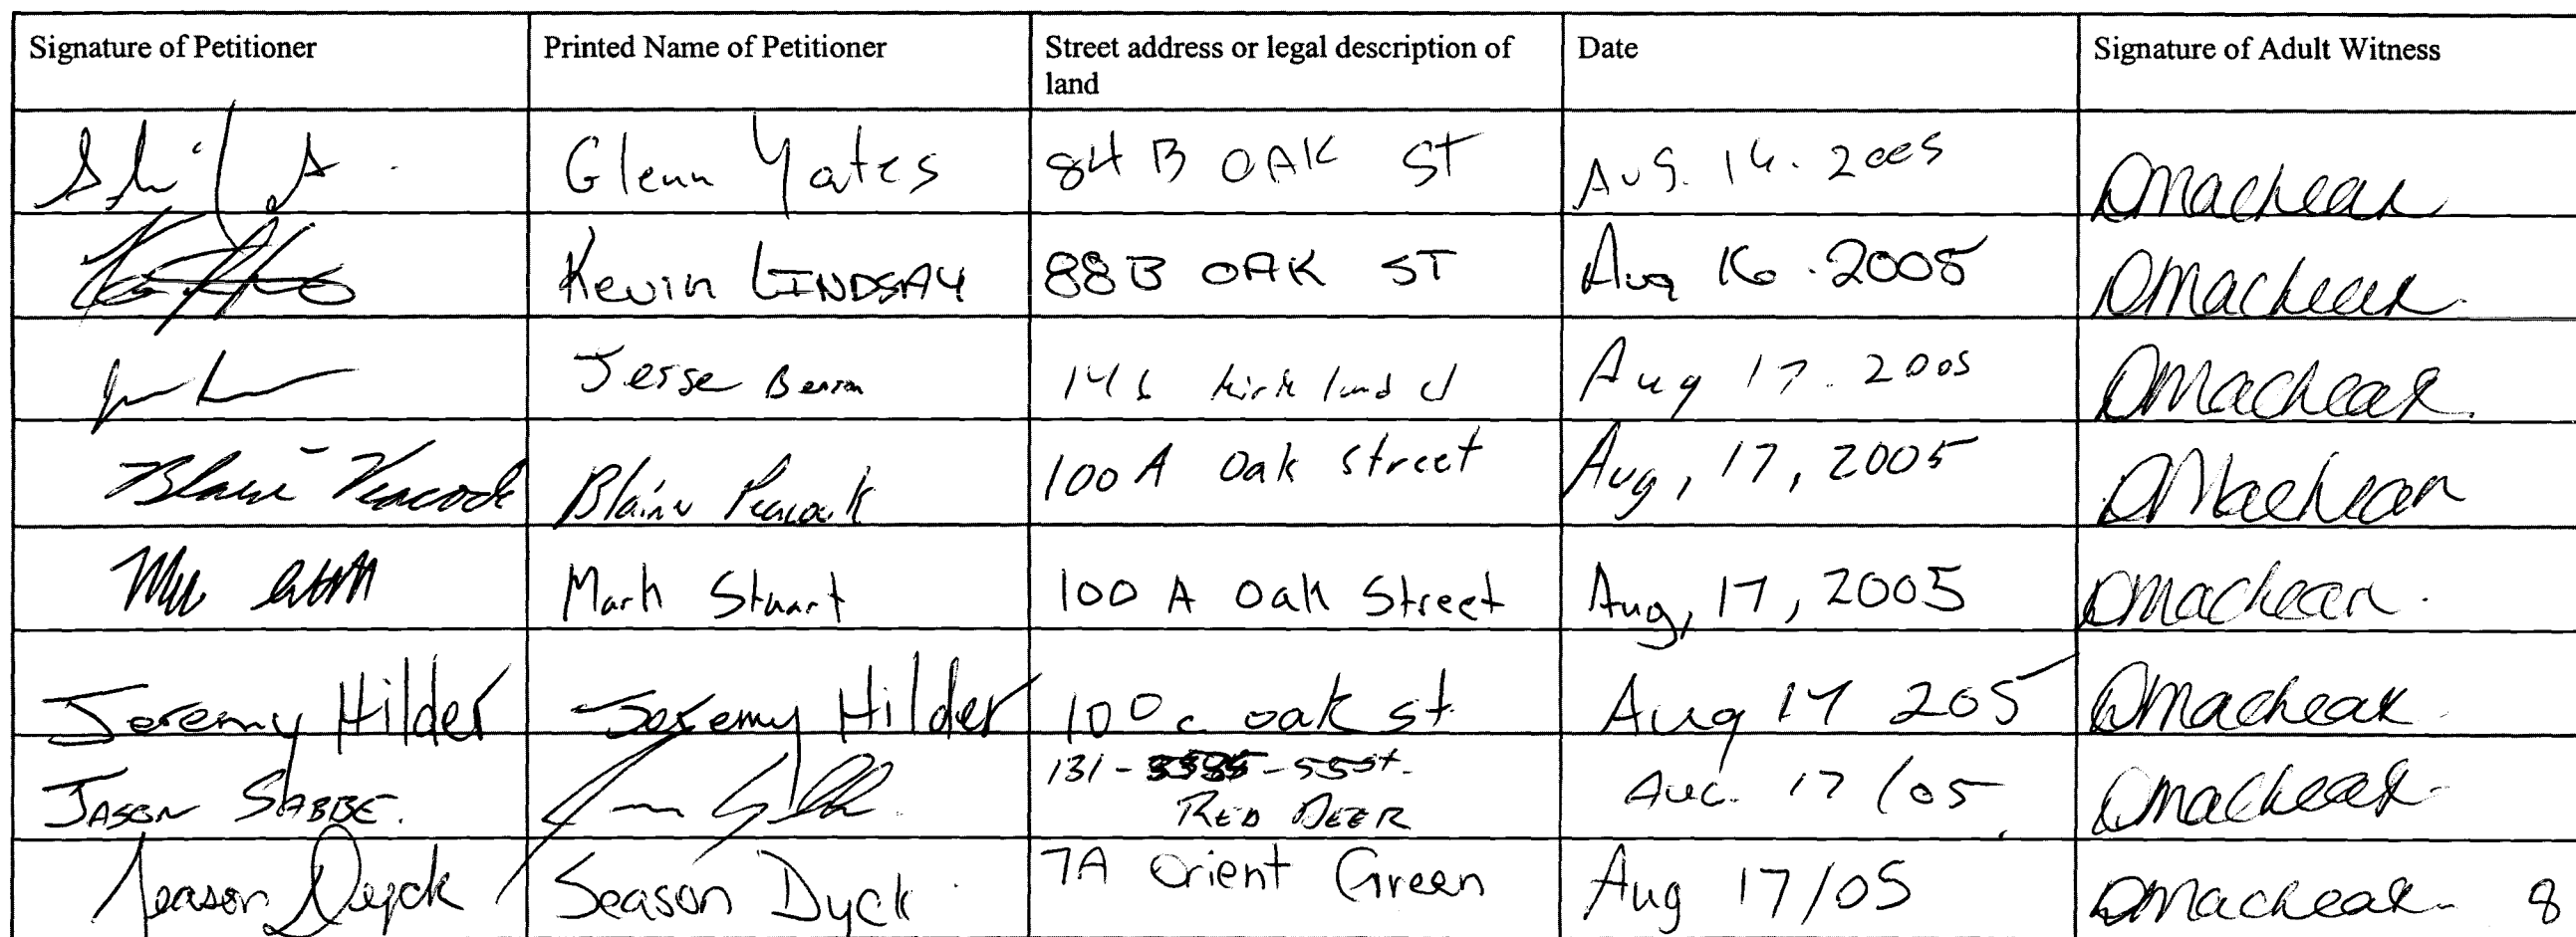 Signature of Petitioner Printed Name of Petitioner Street address or legal description of land Date Signature of Adult Witness
Glenn Yates 84 B OAK ST Aug. 16. 2005 DMacLean
Kevin LINDSAY 88 B OAK ST Aug 16. 2005 DMacLean
Jesse Benson Aug 17. 2005 DMacLean
Blaine Peacock Blaine Peacock 100 A Oak Street Aug, 17, 2005 DMacLean
Mark Stuart 100 A Oak Street Aug, 17, 2005 DMacLean
Jeremy Hilder Jeremy Hilder 100 c oak st Aug 17 205 DMacLean
JASON SABBE. 131 - - 55 st. RED DEER AUG. 17/05 DMacLean
Season Dyck Season Dyck 7A Orient Green Aug 17/05 DMacLean 8